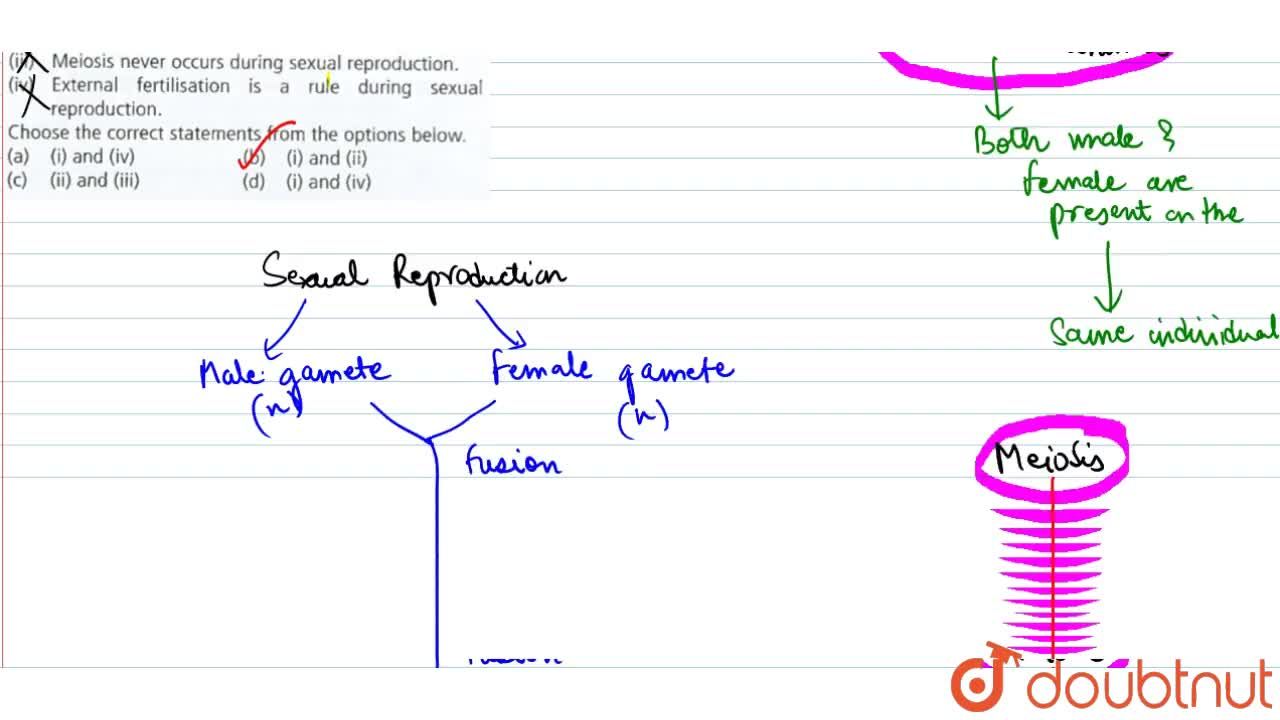 (iii) Meiosis never occurs during sexual reproduction.
(iv) External fertilisation is a rule during sexual
reproduction.
Choose the correct statements from the options below.
(a) (i) and (iv) (b) (i) and (ii)
(c) (ii) and (iii) (d) (i) and (iv)
Both male &
female are
present on the
Same individual
Sexual Reproduction
Male gamete Female gamete
(n) (n)
Fusion
Meiosis
doubtnut